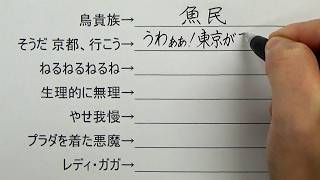 鳥貴族→ 魚民
そうだ 京都、行こう→ うわぁぁ!東京が
ねるねるねるね→
生理的に無理→
やせ我慢→
プラダを着た悪魔→
レディ・ガガ→